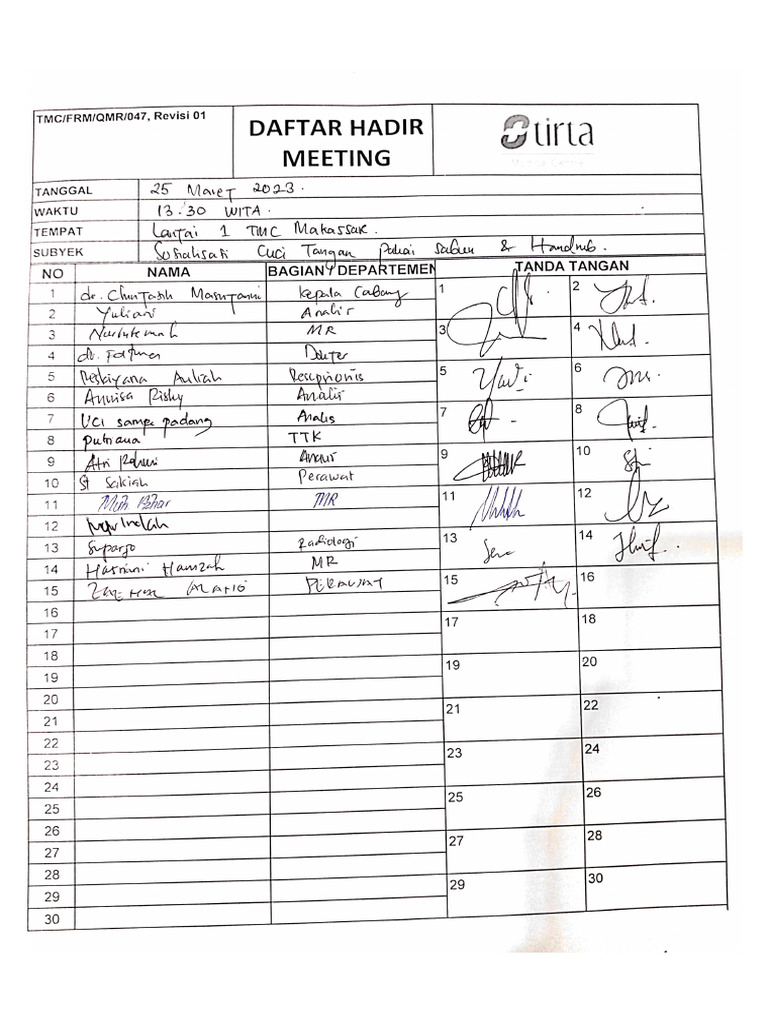 TMC/FRM/QMR/047, Revisi 01
DAFTAR HADIR
MEETING
tirta
TANGGAL 25 Maret 2023.
WAKTU 13:30 WITA.
TEMPAT Lantai 1 TMC Makassar.
SUBYEK Sosialisasi Cuci Tangan pakai sabun & Handrub.
NO NAMA BAGIAN / DEPARTEMEN TANDA TANGAN
1 dr. Kepala Cabang 1 2
2 Yuliani Analis
3 MR 3 4
4 dr. Fatima Dokter
5 Auliah Resepsionis 5 6
6 Annisa Risky Analis
7 Uci sampe padang Analis 7 8
8 putriana TTK
9 Atri 9 10
10 St Sakiah Perawat
11 Muh MR 11 12
12 Nur Indah
13 Suparjo Radiologi 13 14
14 Hasriani Hamzah MR
15 PERAWAT 15 16
16
17 17 18
18
19 19 20
20
21 21 22
22
23 23 24
24
25 25 26
26
27 27 28
28
29 29 30
30